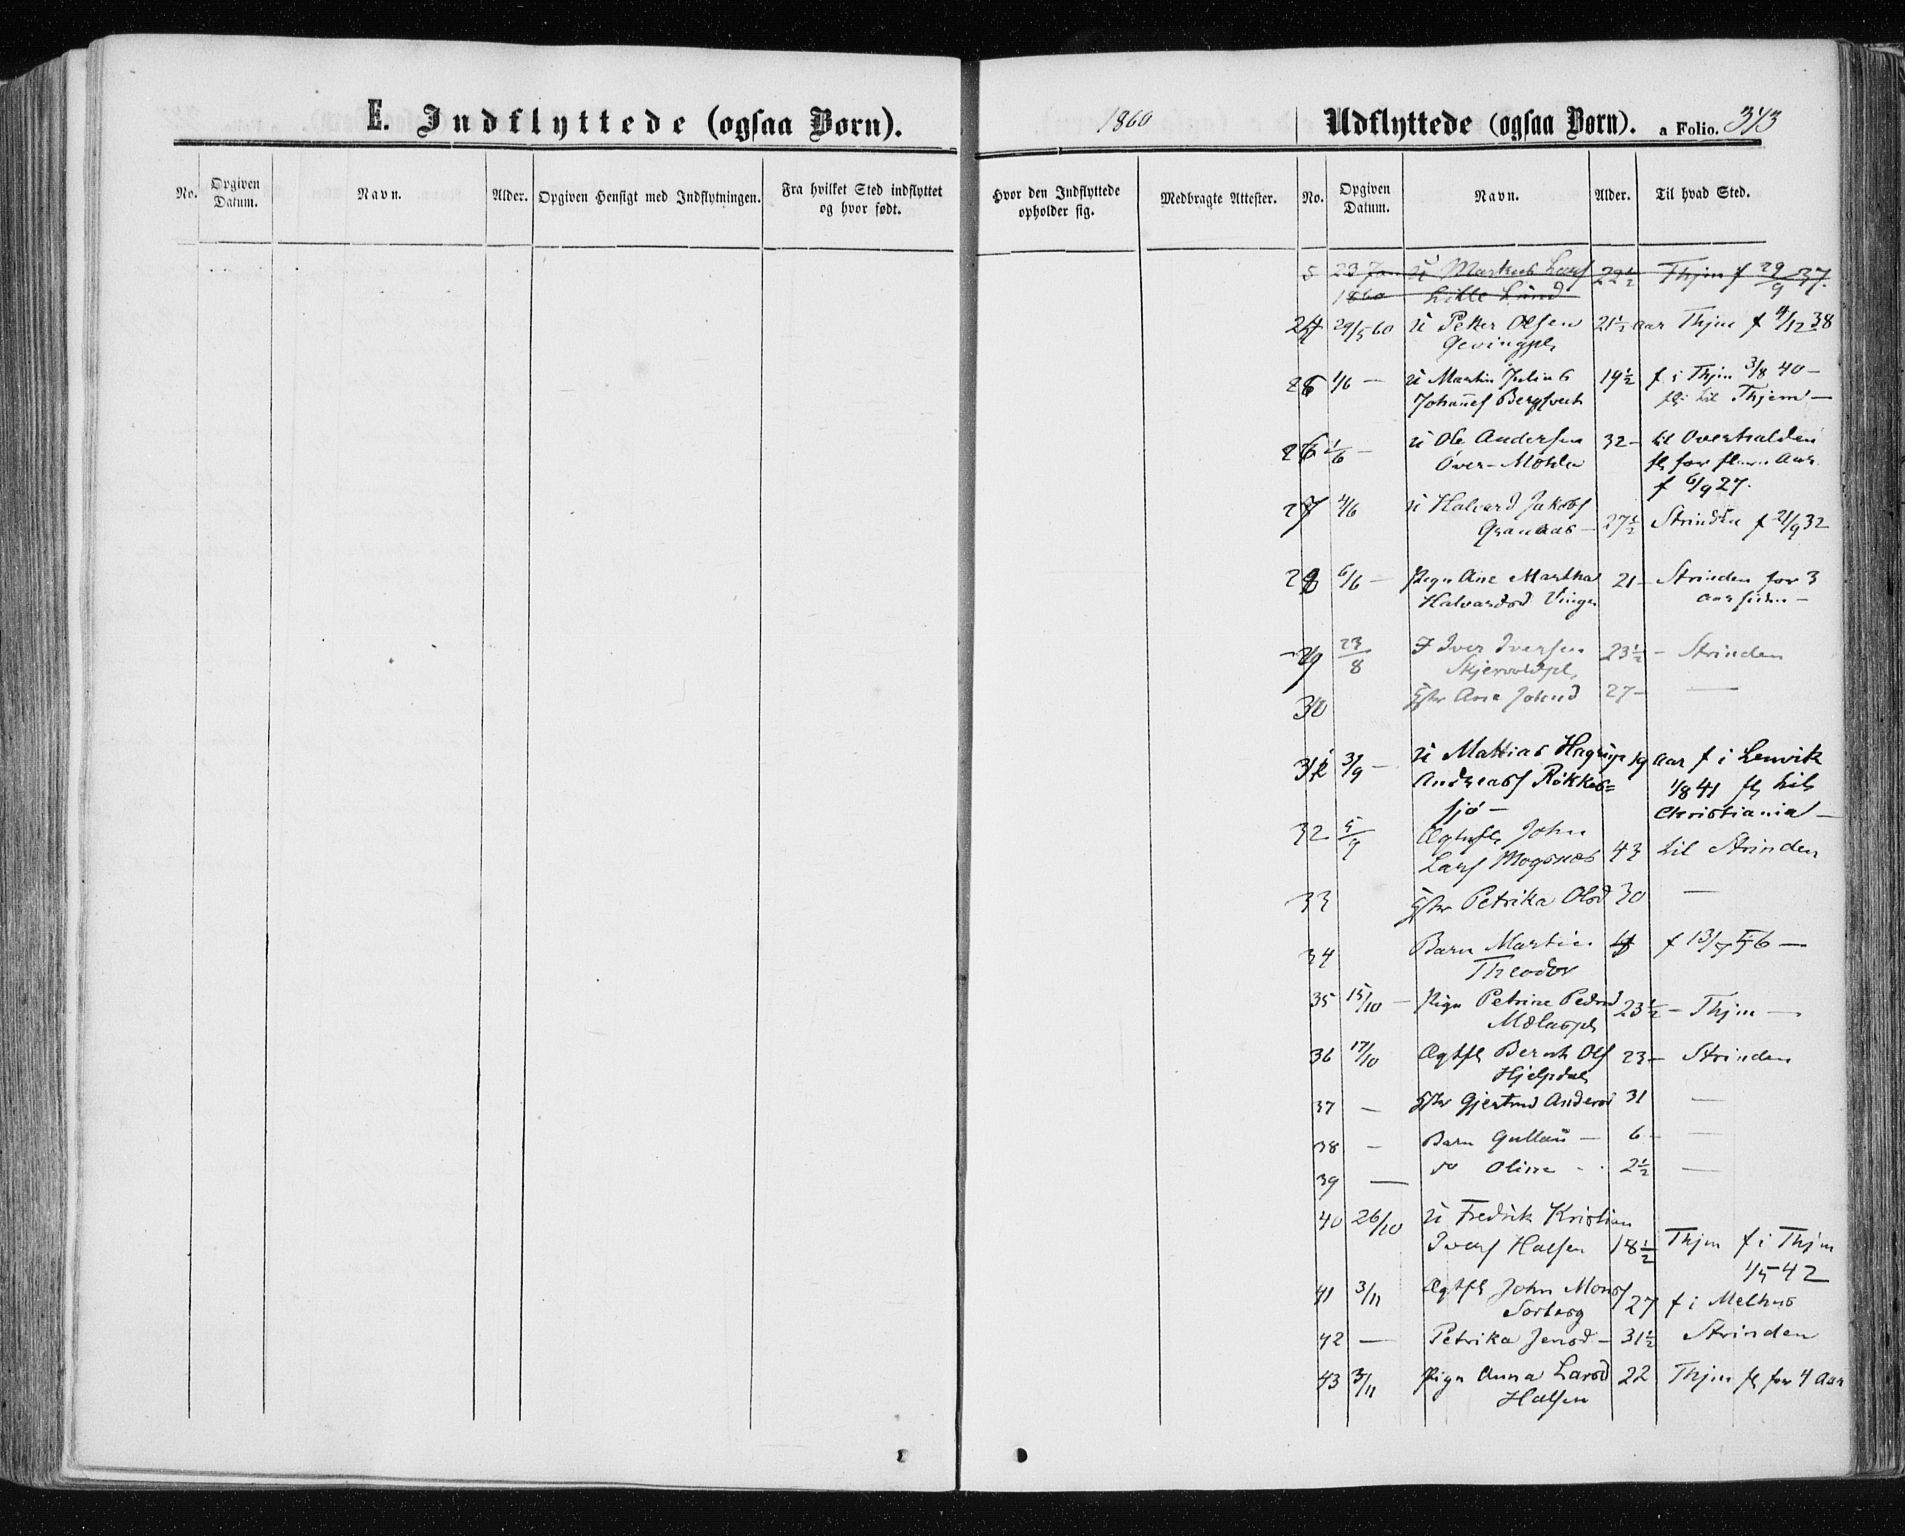 E. Indflyttede (ogsaa Børn).
1860
Udflyttede (ogsaa Børn). a Folio. 343
No. Opgiven Datum. Navn. Alder. Opgiven Hensigt med Indflytningen. Fra hvilket Sted indflyttet og hvor født.
Hvor den Indflyttede opholder sig. Medbragte Attester. No. Opgiven Datum. Navn. Alder. Til hvad Sted.
5 23 Jan u Markus Larsf 22½ Thjm f 29/9 37.
1860 Lille Lund
24 29/5 60 u Peter Olsen 21½ aar Thjm f 4/12 38
Gevingpl
25 1/6 — u Martin Julius 19½ f i Thjm 3/8 40 —
Johannes til Thjem —
26 1/6 — u Ole Andersen 32 — til Overhalden
Over-Mohlen fl for flere Aar
f 6/9 27.
27 4/6 u Halvard Jakobs
Granaas — 27½ Strinden f 21/9 32
28 6/6 — Pige Ane Martha 21 — Strinden for 3
Halvardsd Vinge aar siden —
29 23/8 I Iver Iversen 23½ — Strinden
Skjervoldpl
30 Ane Johnsd 27 — —
31 3/9 — u Mattias Hagerup 19 aar f i Lenvik
Andreass Røkkes= 1/8 41 fl til
sjø — Christiania —
32 5/9 John
Lars Mogsnæs 43 til Strinden
33 Petrika Olsd 30 —
34 Barn Martin 4 f 13/7 56 —
Theodor
35 15/10 — Pige Petrine Pedersd 23½ — Thjm —
36 17/10 Ægtfl Bernt Ols 23 — Strinden
Hjelpdal
37 — Gjertrud Andersd 31 —
38 — Barn — 6 — —
39 — do Oline - . 2½ —
40 26/10 u Fredrik Kristian
Ivers Halsen 18½ Thjm f i Thjm
1/5 42
41 3/11 Ægtfl John Mons
Sorberg 27 f i Melhus
42 — Petrika Jensd — 31½ Strinden
43 3/11 Pige Anna Larsd 22 Thjm fl for 4 Aar
Halsen